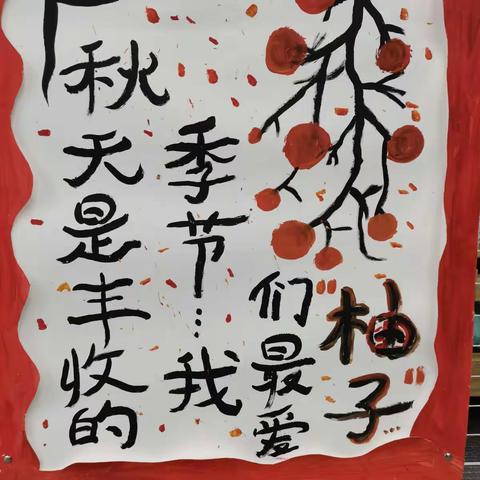 秋天是丰收的
季节…我
们最爱
"柚子"…